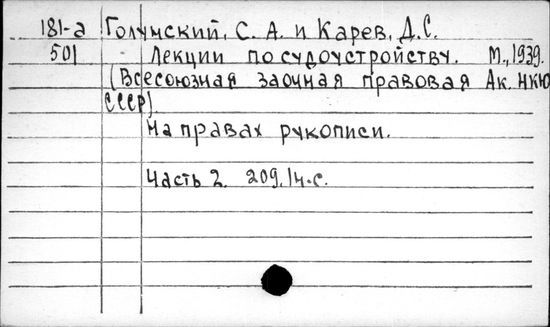 181-а Голунский, С. А. и Карев, Д.С.
501 Лекции по судоустройству. М., 1939.
(Всесоюзная заочная правовая Ак. НКЮ
СССР).
На правах рукописи.
Часть 2. 209, 14 с.